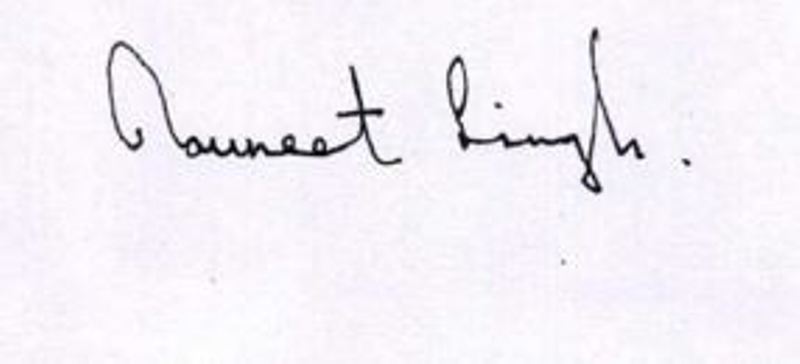 Navneet Singh.